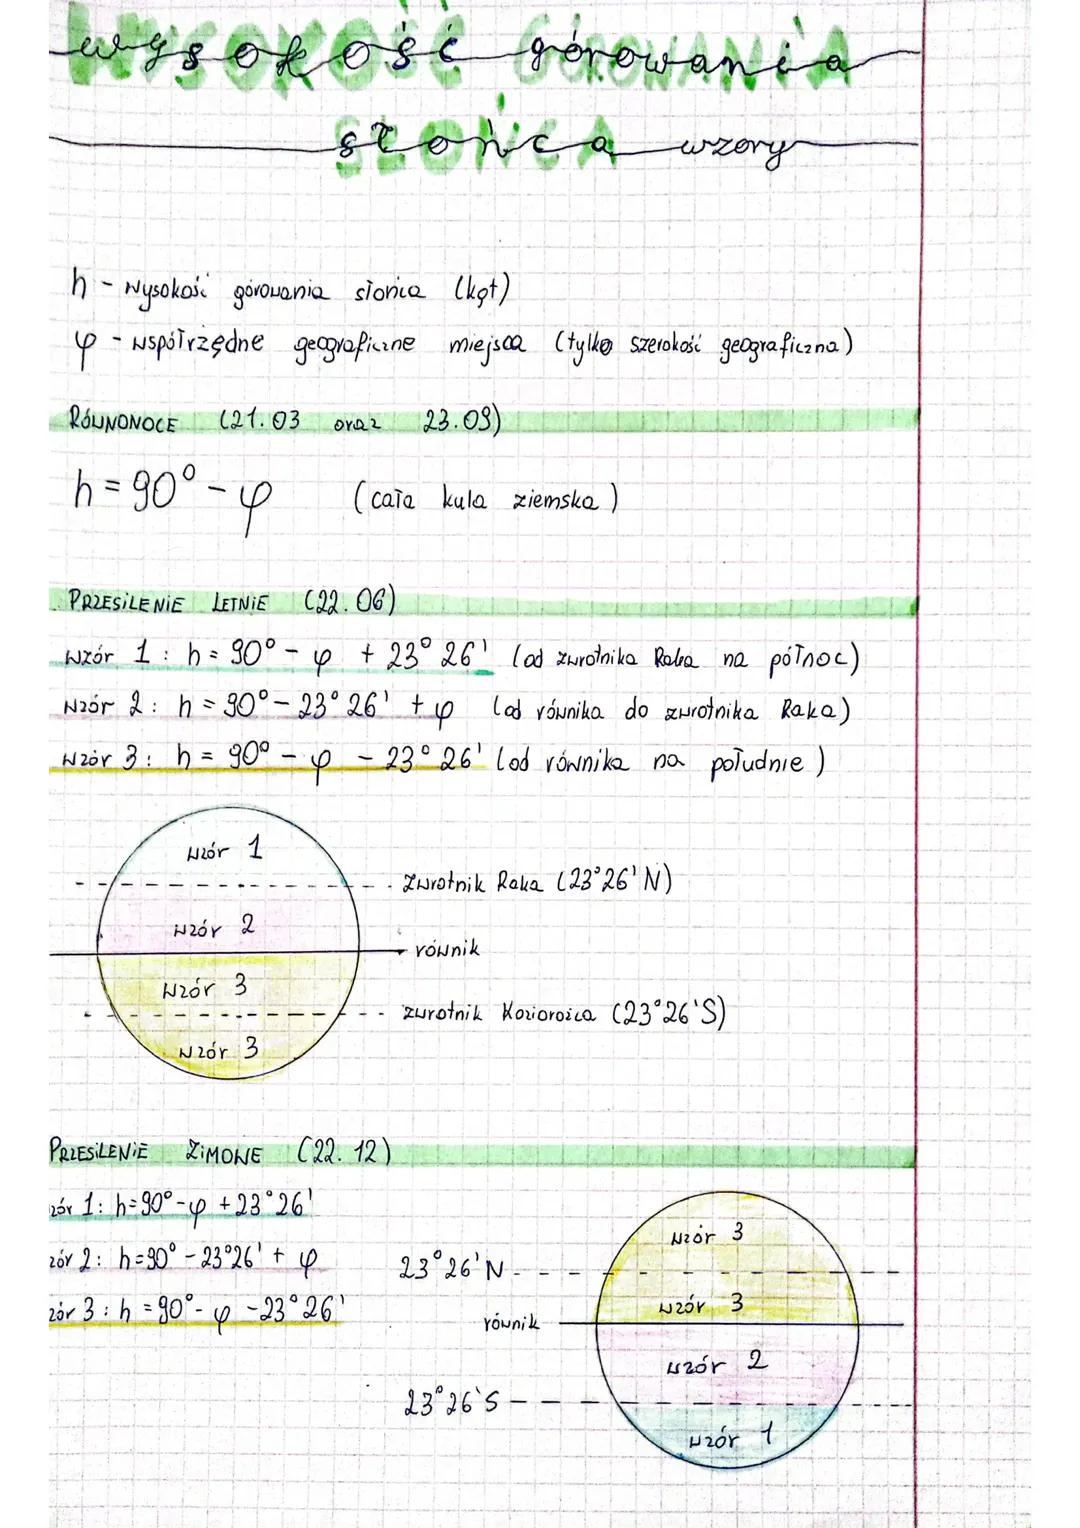 wysokość górowania
słońca wzory
h - wysokość górowania słońca (kąt)
φ - współrzędne geograficzne miejsca (tylko szerokość geograficzna)
RÓWNONOCE (21.03 oraz 23.09)
h = 90° - φ (cała kula ziemska)
PRZESILENIE LETNIE (22.06)
wzór 1: h = 90° - φ + 23°26' (od zwrotnika Raka na północ)
wzór 2: h = 90° - 23°26' + φ (od równika do zwrotnika Raka)
wzór 3: h = 90° - φ - 23°26' (od równika na południe)
wzór 1
zwrotnik Raka (23°26'N)
wzór 2
równik
wzór 3
zwrotnik Koziorożca (23°26'S)
wzór 3
PRZESILENIE ZIMOWE (22.12)
zór 1: h = 90° - φ + 23°26'
zór 2: h = 90° - 23°26' + φ
zór 3: h = 90° - φ - 23°26'
wzór 3
23°26'N
wzór 3
równik
wzór 2
23°26'S
wzór 1